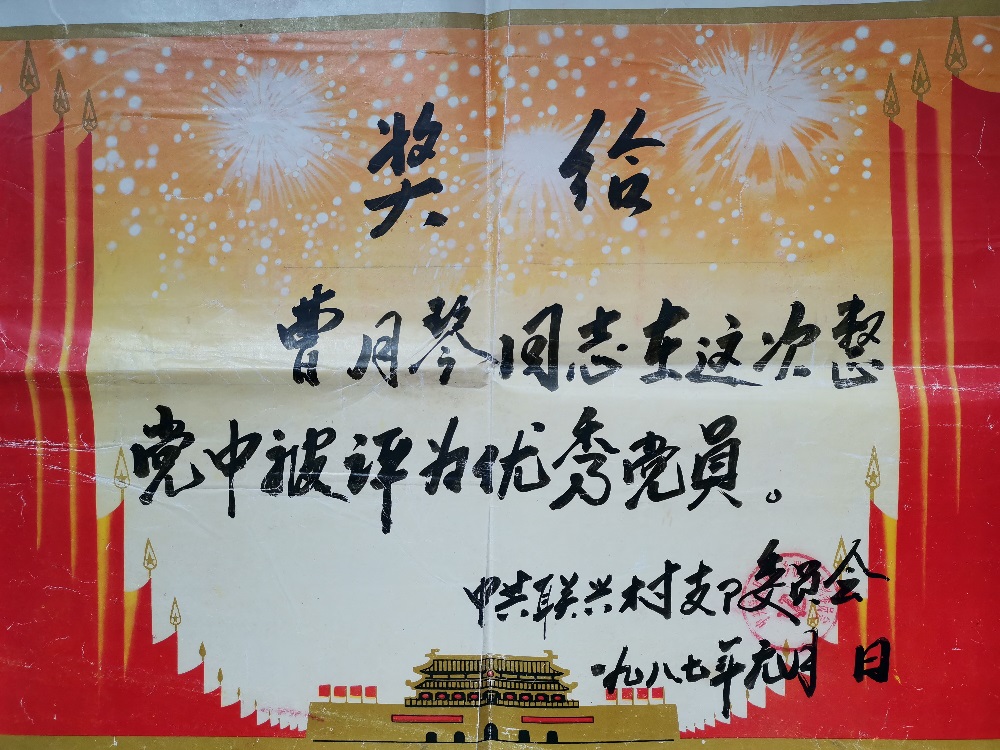 奖给
曹月琴同志在这次整
党中被评为优秀党员。
中共联兴村支卩委员会
一九八七年元月 日